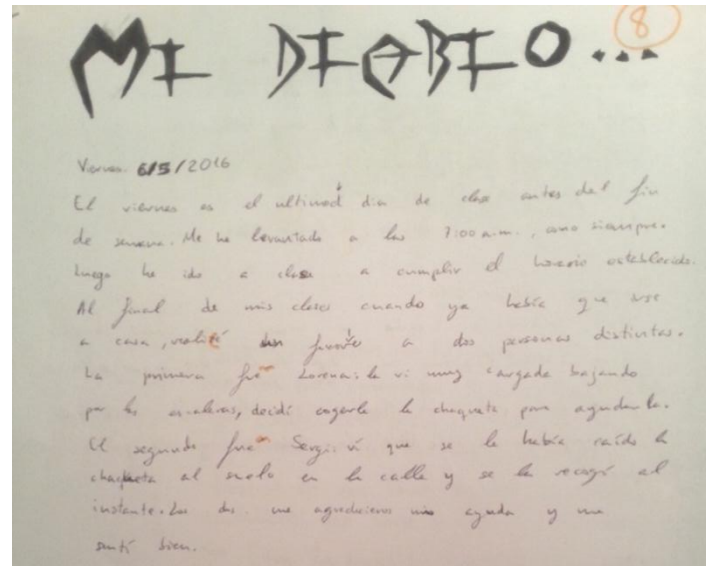 MI DIABLO...
8
Viernes. 6/5/2016
El viernes es el ultimod dia de clase antes del fin
de semana. Me he levantado a las 7:00 a.m., como siempre.
Luego he ido a clase a cumplir el horario establecido.
Al final de mis clases cuando ya había que irse
a casa, realicé favores a dos personas distintas.
La primera fue Lorena: la vi muy cargada bajando
por las escaleras, decidí cogerle la chaqueta para ayudarla.
El segundo fue Sergi: ví que se le había caído la
chaqueta al suelo en la calle y se la recogí al
instante. Los dos me agradecieron mi ayuda y me
sentí bien.